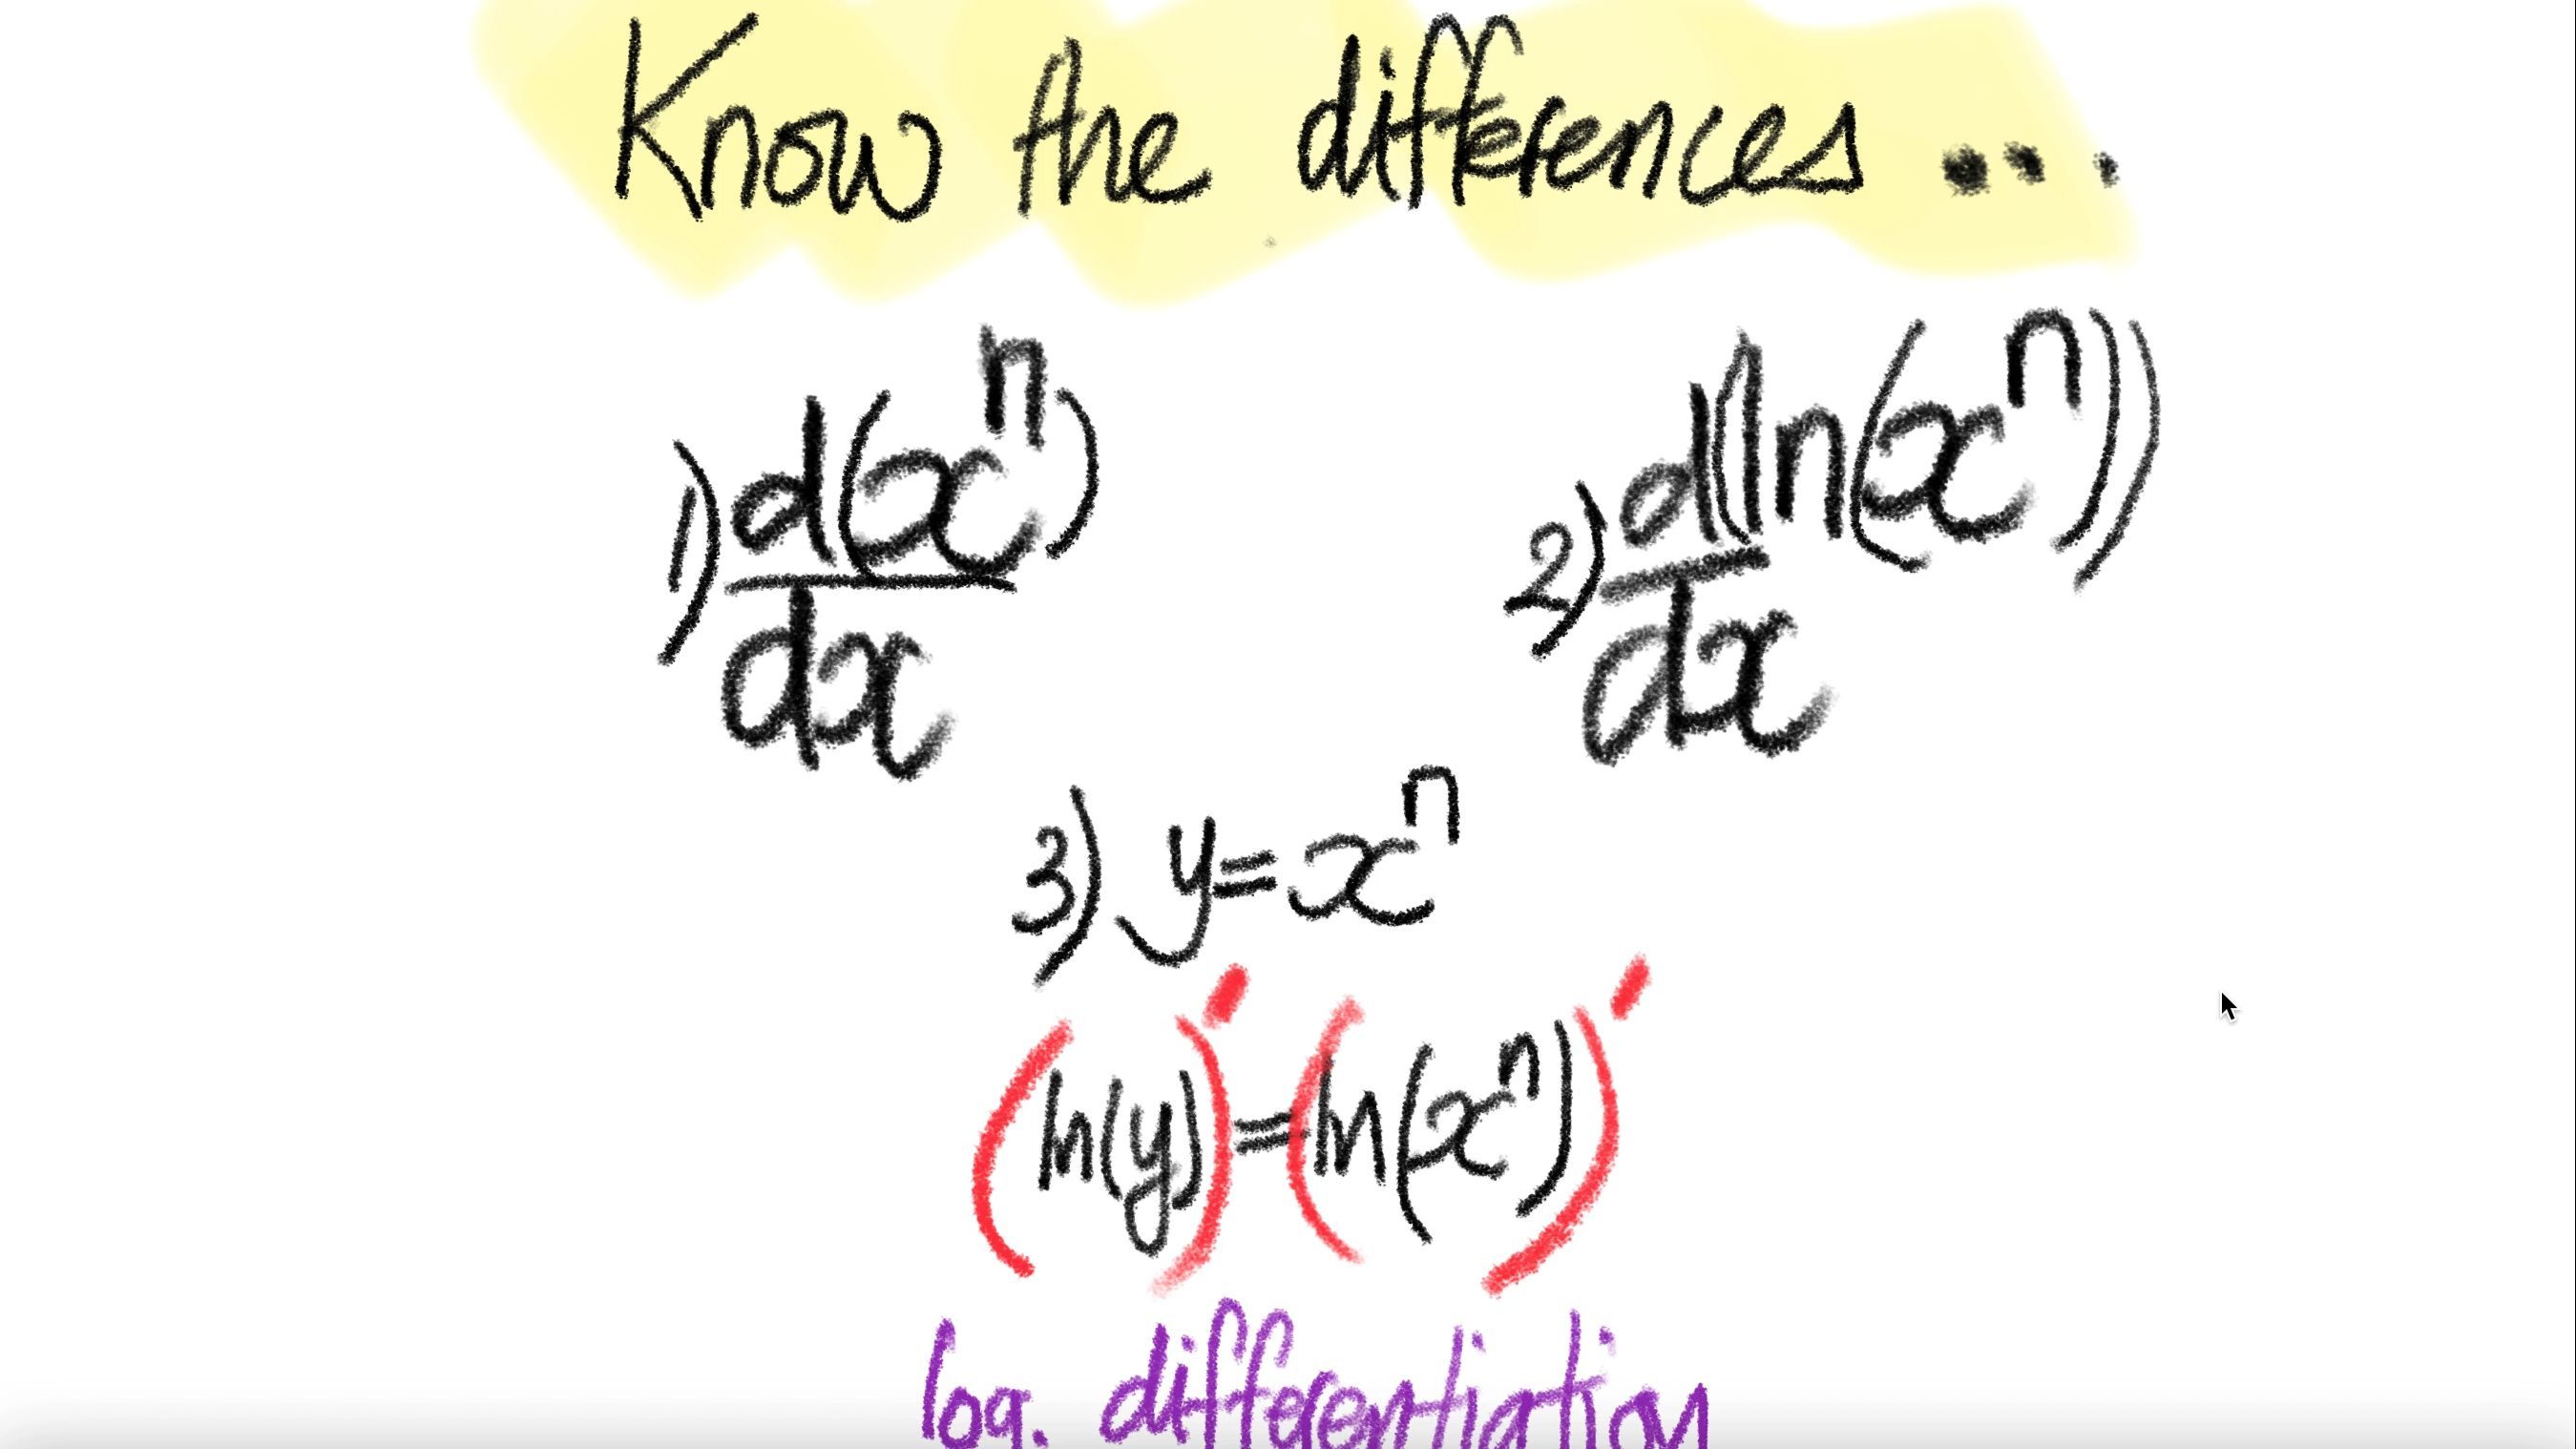 Know the differences...
1) d(x^n)/dx
2) d(ln(x^n))/dx
3) y=x^n
(ln(y))'=(ln(x^n))'
log. differentiation